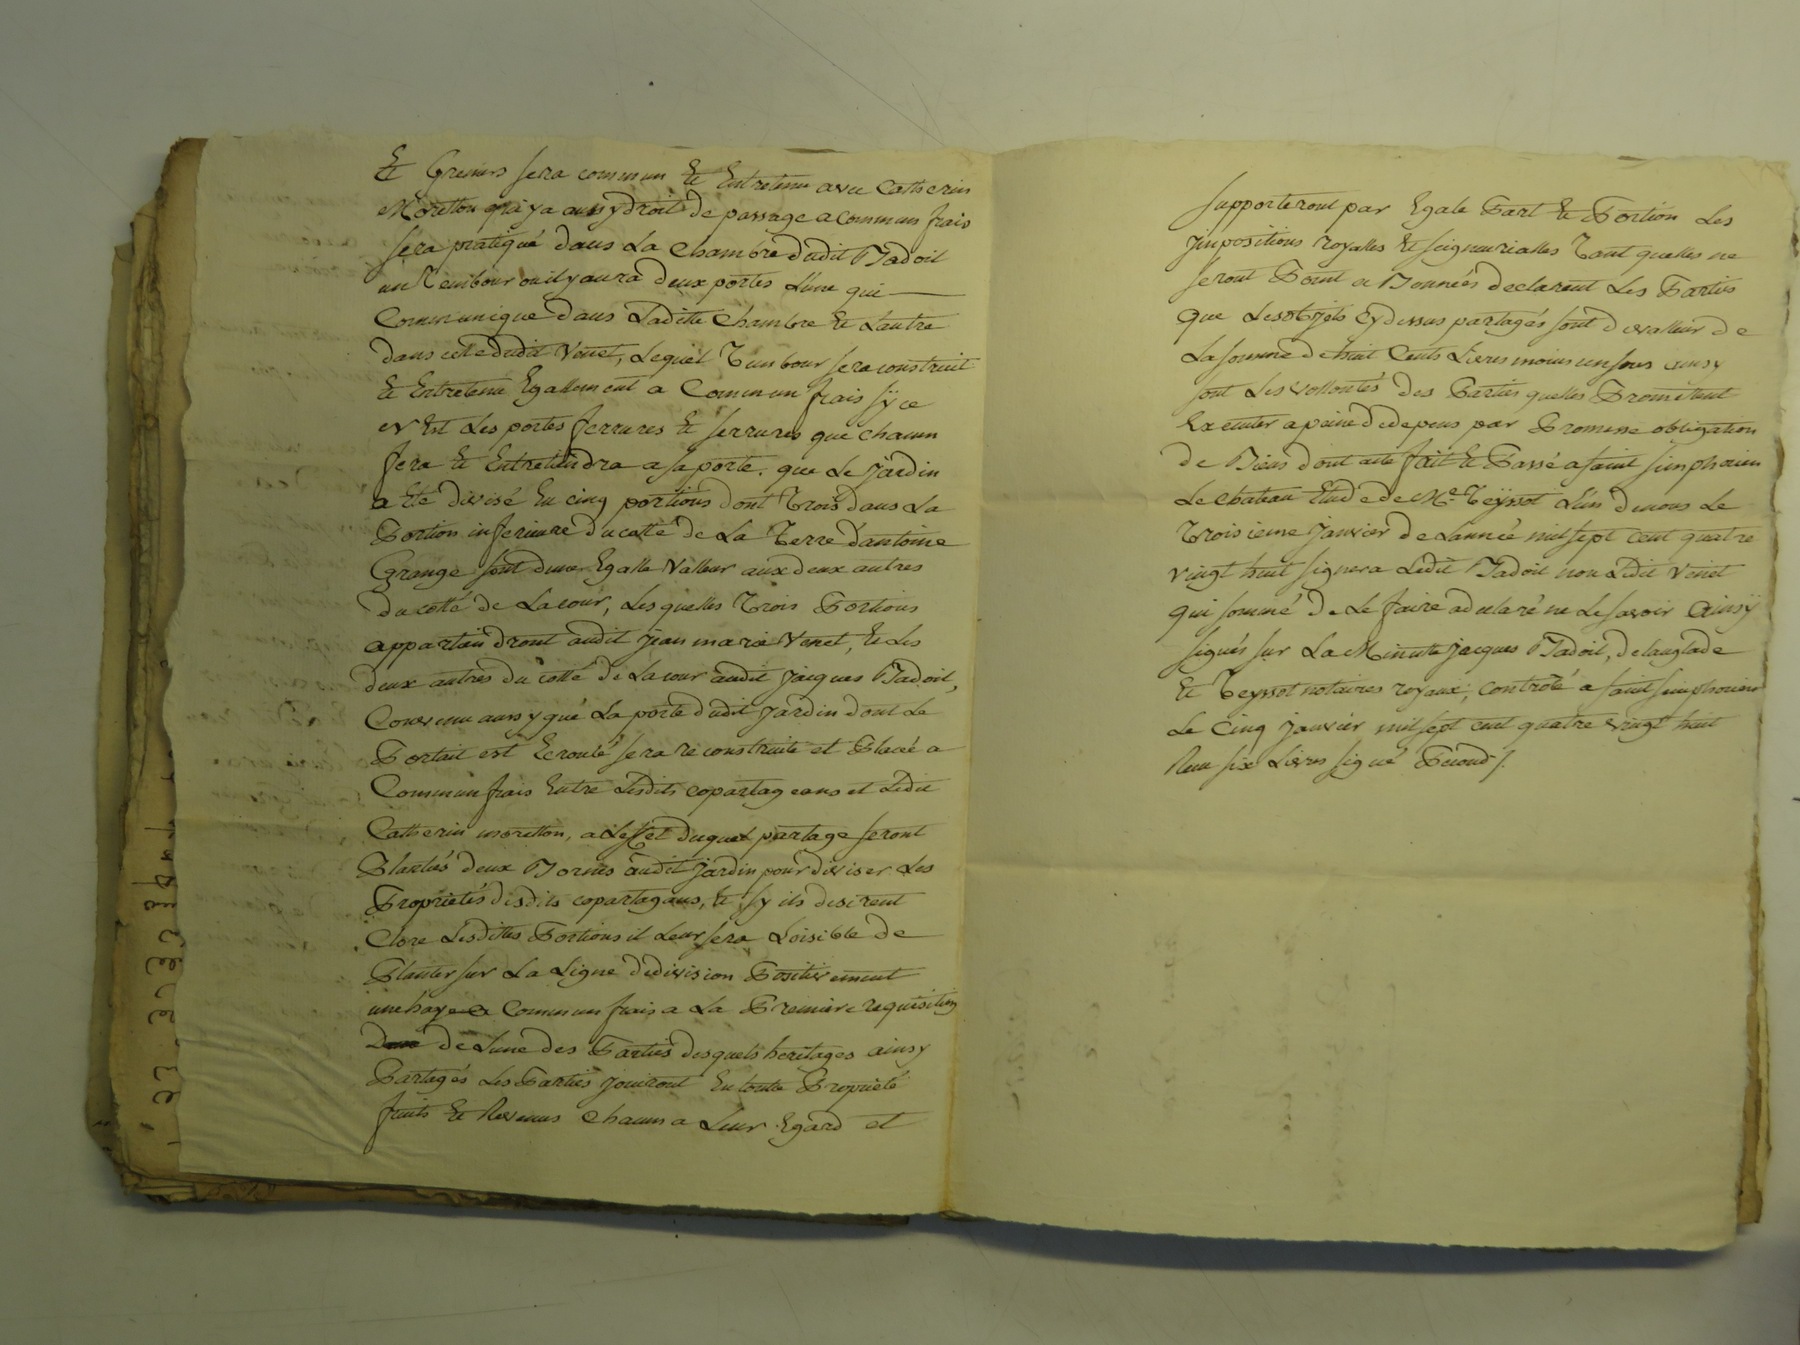 Et Greniers sera commun Et Entretenu avec Catherin
Moretton qui y a aussy droit de passage a commun frais
sera pratiqué dans La Chambre dudit Badoil
un Tembour ou il y aura deux portes L'une qui
Communique dans Laditte Chambre Et Lautre
dans celle dudit Venet, Lequel Tembour sera construit
Et Entretenu Egallement a Commun frais sy ce
n'Est Les portes ferrures Et serrures que chacun
fera Et Entretiendra a sa porte. que Le jardin
a Eté divisé En cinq portions dont Trois dans La
Portion inferieure du cotté de La Terre d'antoine
Grange sont d'une Egalle Valleur aux deux autres
du cotté de La cour, Lesquelles Trois Portions
appartiendront audit jean marie Venet, Et Les
deux autres du cotté de La cour audit jacques Badoil,
Convenu aussy que La porte dudit jardin dont Le
Portail est Ecroulé sera reconstruite et Placée a
Commun frais Entre Lesdits copartageans et Ledit
Catherin moretton, a L'effet duquel partage seront
Plantés deux Bornes audit jardin pour diviser Les
Proprietés desdits copartagans, Et sy ils desirent
Clore Lesdittes Portions il Leur sera Loisible de
Planter sur La Ligne de division Positivement
une haye a Commun frais a La Premiere requisition
de L'une des Parties desquels heritages ainsy
Partagés Les Parties jouiront En toutte Proprieté
fruits Et Revenus chacun a Leur Egard et
supporteront par Egale Part Et Portion Les
impositions royalles Et seigneurialles Tant quelles ne
seront Point a Bonnées declarent Les Parties
que Les objets cy dessus partagés sont de valleur de
La somme de huit Cents Livres moins un sous ainsy
sont Les vollontés des Parties quelles Promettent
Executer a peine de depens par Promesse obligation
de Biens dont acte fait Et Passé a saint simphorien
Le chateau Etude de Me Teyssot L'un de nous Le
Troisieme janvier de L'année mil sept cent quatre
vingt huit signera Ledit Badoil non Ledit Venet
qui sommé de Le faire a declaré ne Le savoir Ainsÿ
signés sur La Minute jacques Badoil, delanglade
Et Teyssot notaires royaux, controlé a saint simphorien
Le cinq janvier mil sept cent quatre vingt huit
Reçu six Livres signé